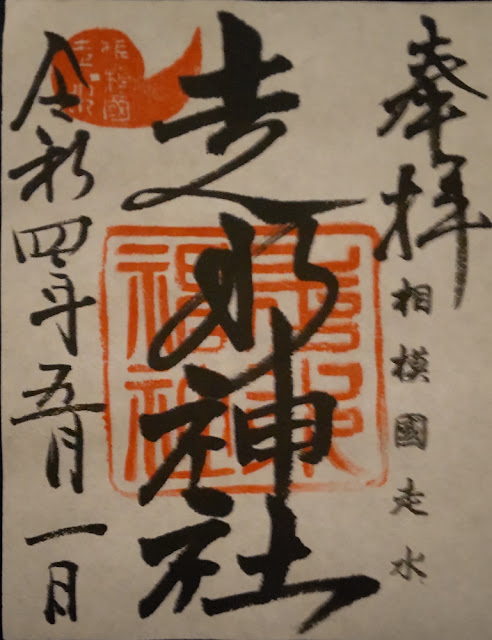 奉拝
相模國走水
走水神社
令和四年五月一日